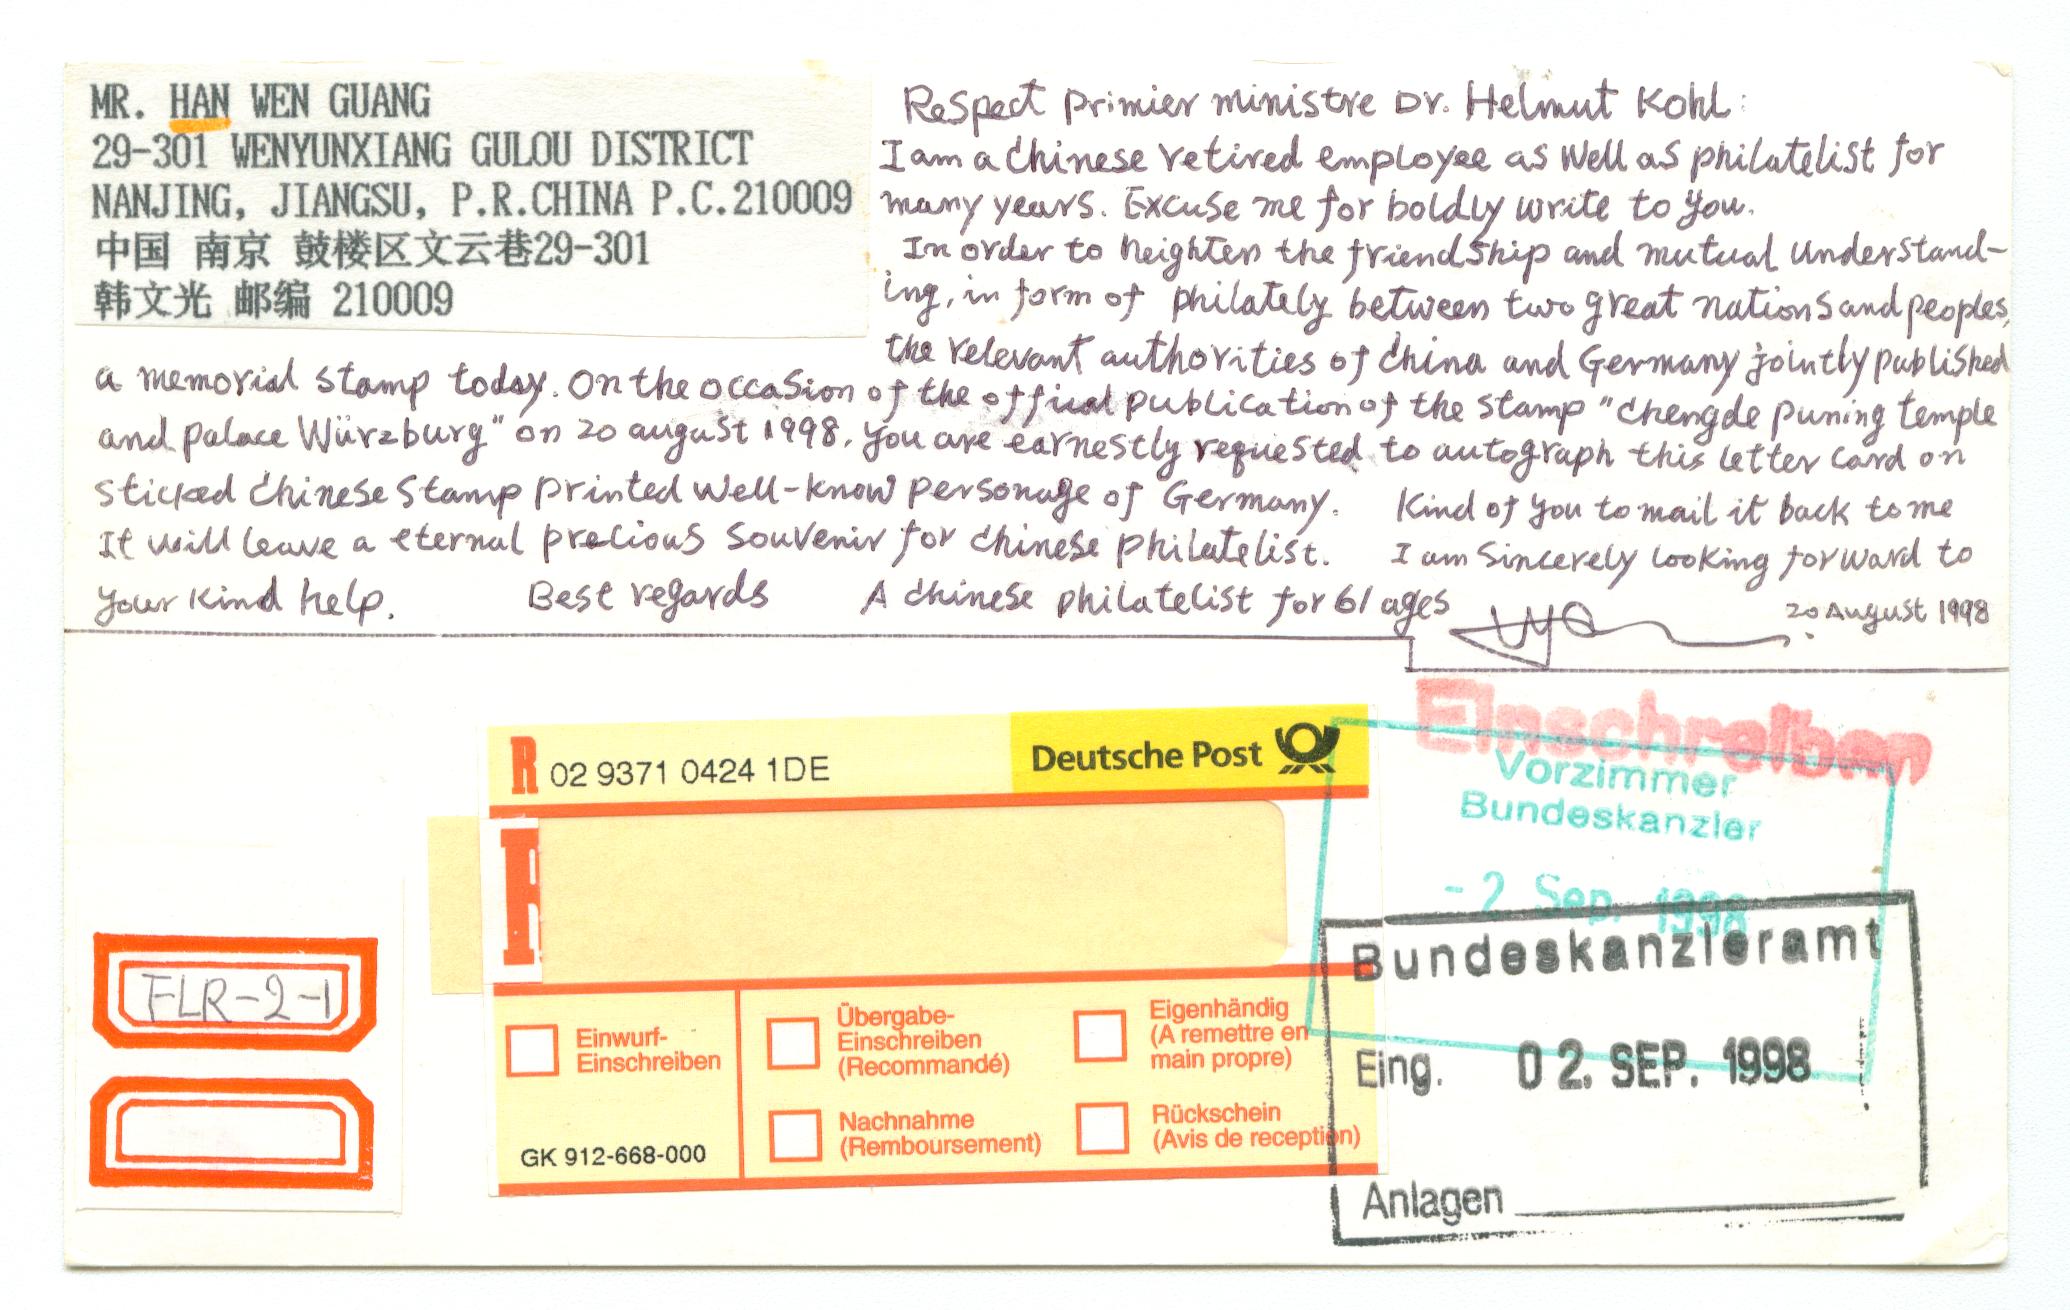 MR. HAN WEN GUANG
29-301 WENYUNXIANG GULOU DISTRICT
NANJING, JIANGSU, P.R.CHINA P.C.210009
中国 南京 鼓楼区文云巷29-301
韩文光 邮编 210009
Respect primier ministre Dr. Helmut Kohl:
I am a chinese retired employee as well as philatelist for
many years. Excuse me for boldly write to you.
In order to heighten the friendship and mutual understand-
ing, in form of philately between two great nations and peoples,
the relevant authorities of china and Germany jointly published
a memorial stamp today. On the occasion of the offical publication of the stamp "chengde puning temple
and palace Würzburg" on 20 august 1998. you are earnestly requested to autograph this letter card on
sticked chinese stamp printed well-know personage of Germany. Kind of you to mail it back to me
It will leave a eternal precious souvenir for chinese philatelist. I am sincerely looking forward to
your kind help. Best regards A chinese philatelist for 61 ages
20 August 1998
Einschreiben
R 02 9371 0424 1DE
Deutsche Post
Vorzimmer
Bundeskanzler
-2 Sep. 1998
R
Bundeskanzleramt
Eing. 02. SEP. 1998
Anlagen
FLR-2-1
Einwurf-
Einschreiben
Übergabe-
Einschreiben
(Recommandé)
Eigenhändig
(A remettre en
main propre)
Nachnahme
(Remboursement)
Rückschein
(Avis de reception)
GK 912-668-000